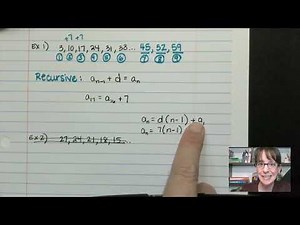 +7 +7
Ex 1) 3, 10, 17, 24, 31, 38... 45, 52, 59
1 2 3 4 5 6 7 8 9
Recursive: aₙ₋₁ + d = aₙ
a₁₇ = a₁₆ + 7
aₙ = d(n-1) + a₁
aₙ = 7(n-1)
Ex 2) 27, 24, 21, 18, 15...